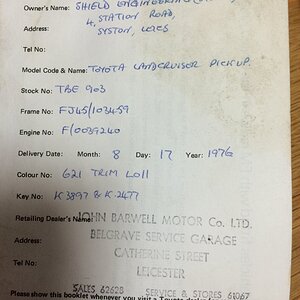 Owner's Name: SHIELD ENGINEERING
4, STATION ROAD,
Address: SYSTON, LEICS
Tel No:
Model Code & Name: TOYOTA LANDCRUISER PICKUP.
Stock No: TBE 903
Frame No: FJ45/103459
Engine No: F/0039240
Delivery Date: Month: 8 Day: 17 Year: 1976
Colour No: 621 TRIM LO11
Key No: K3897 & K.2477
Retailing Dealer's Name: JOHN BARWELL MOTOR Co. LTD.
BELGRAVE SERVICE GARAGE
Address: CATHERINE STREET
Tel No: LEICESTER
SALES 62628 SERVICE & STORES 61067
Please show this booklet whenever you visit a Toyota